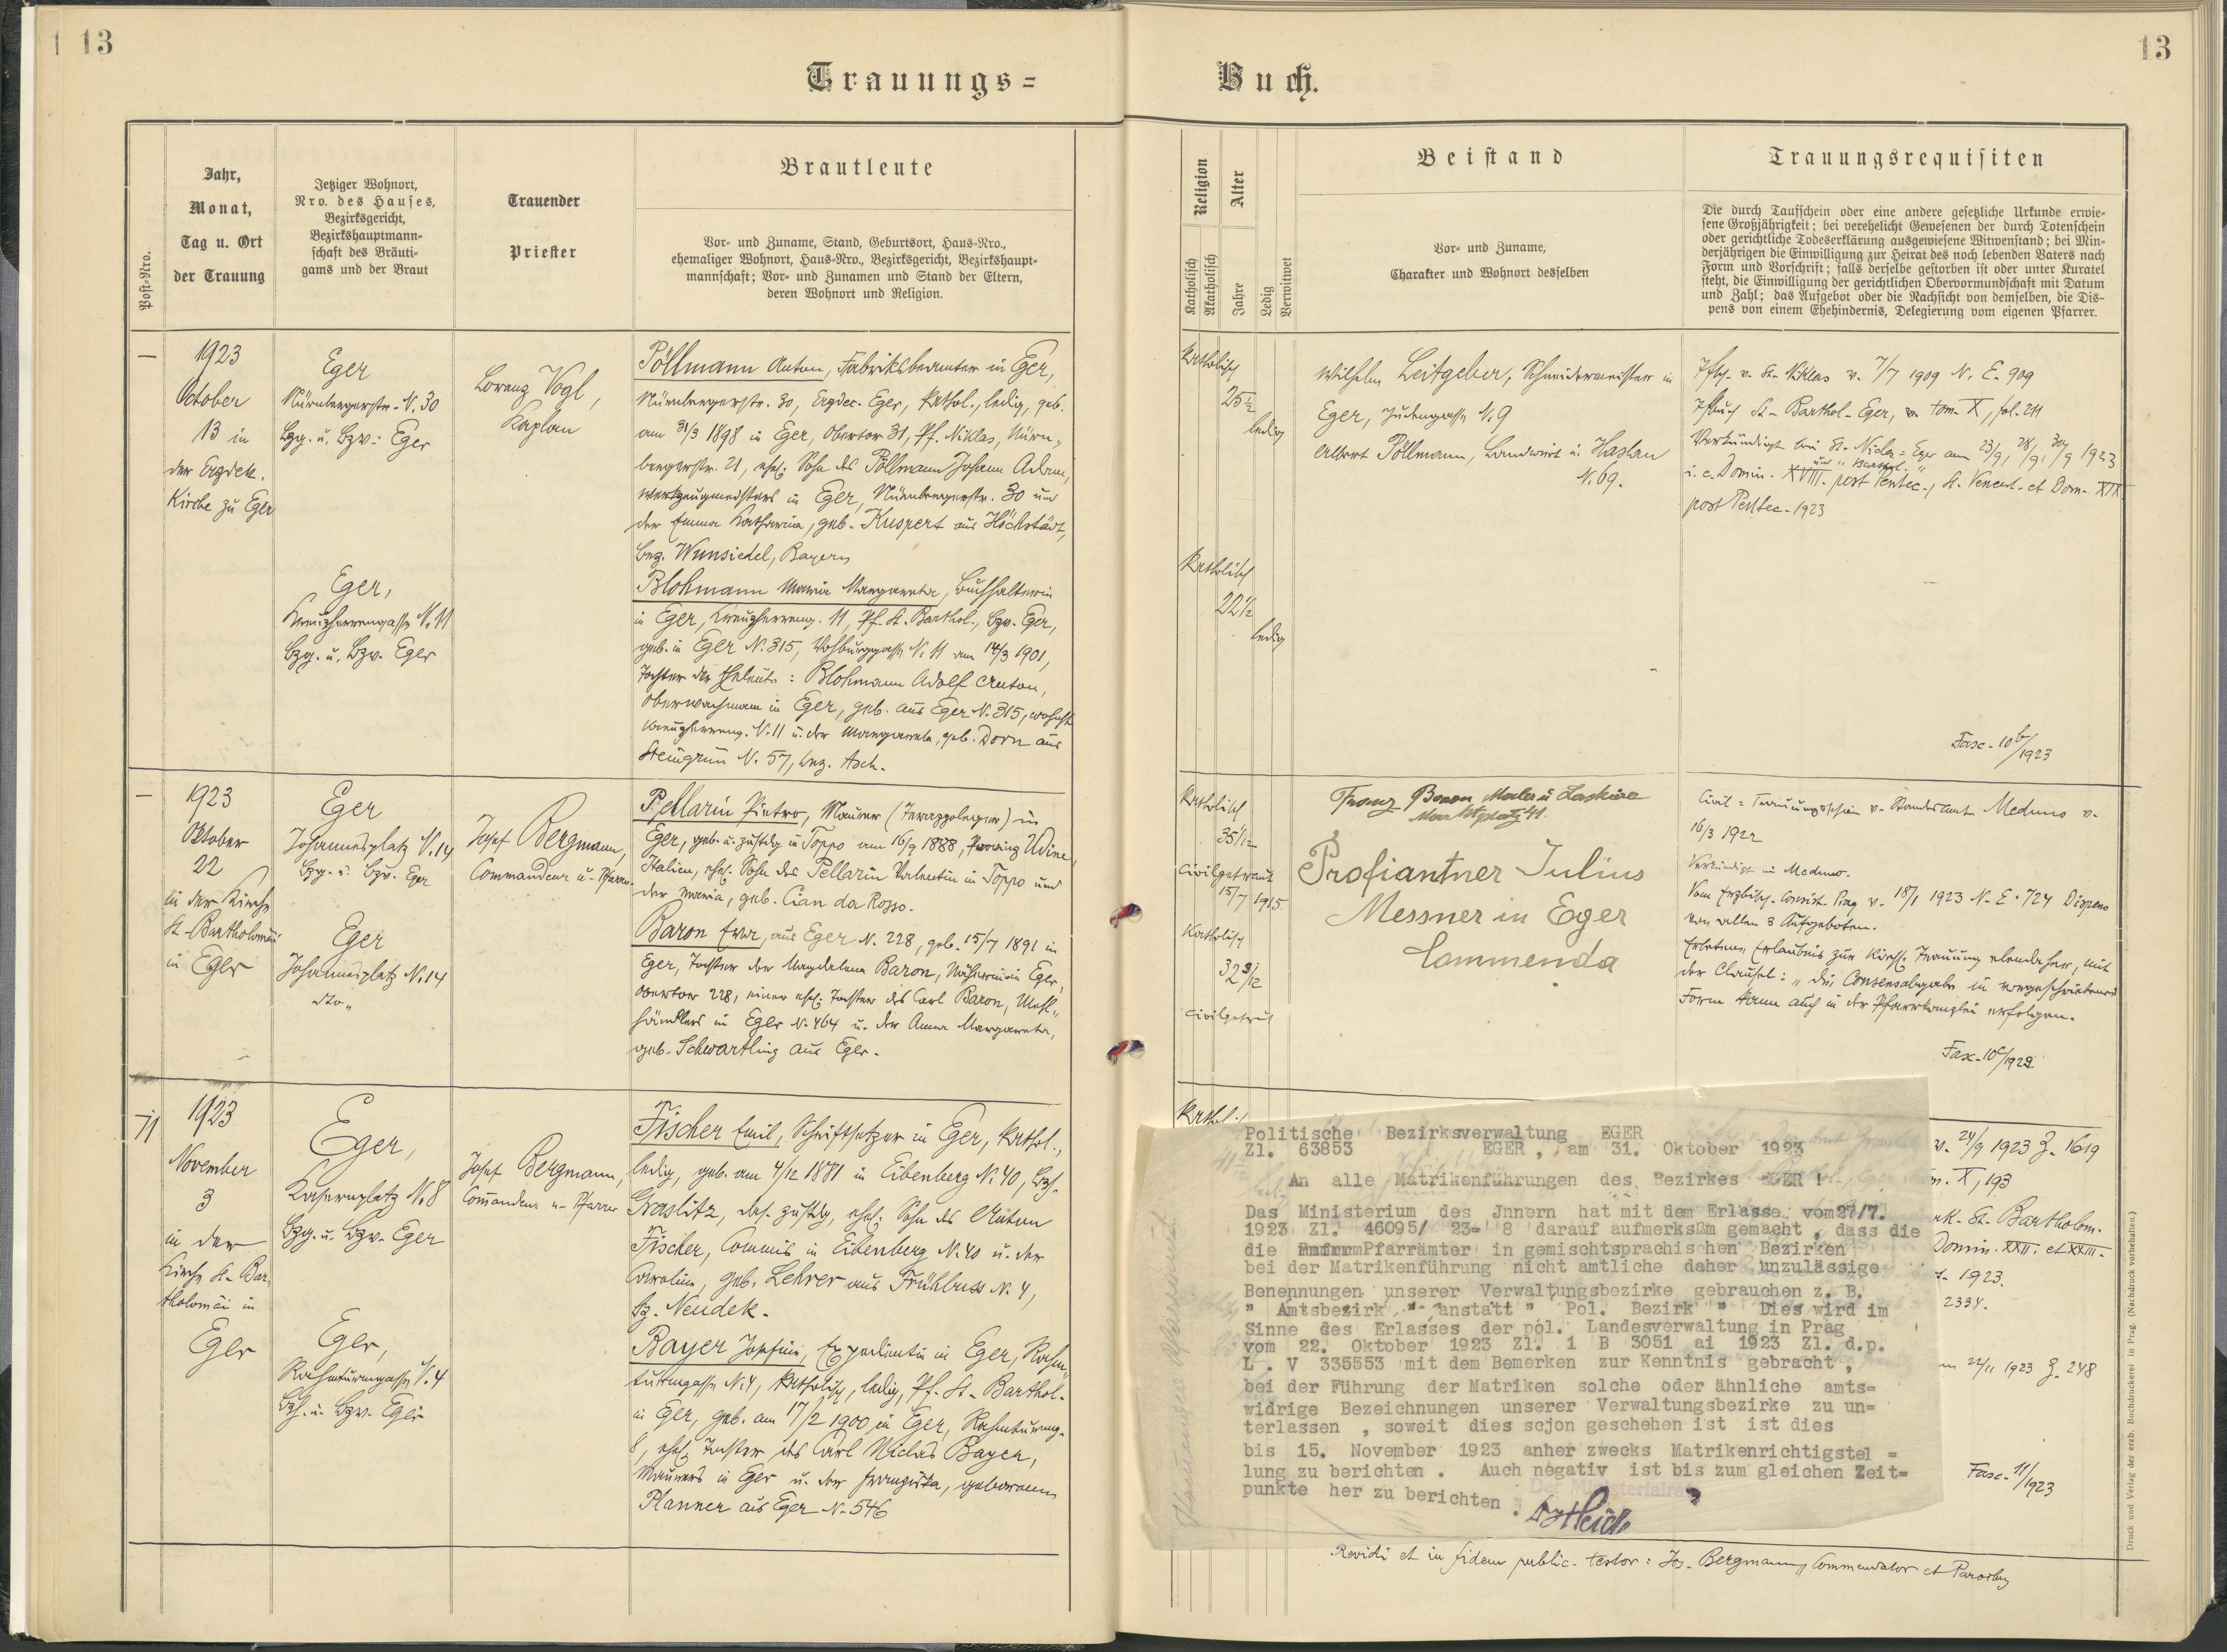 13
13
Trauungs=
Buch.
Post=Nro.
Jahr,
Monat,
Tag u. Ort
der Trauung
Jetziger Wohnort,
Nro. des Hauses,
Bezirksgericht,
Bezirkshauptmann=
schaft des Bräuti=
gams und der Braut
Trauender
Priester
Brautleute
Vor= und Zuname, Stand, Geburtsort, Haus=Nro.,
ehemaliger Wohnort, Haus=Nro., Bezirksgericht, Bezirkshaupt=
mannschaft; Vor= und Zunamen und Stand der Eltern,
deren Wohnort und Religion.
Religion
Katholisch
Akatholisch
Alter
Jahre
Ledig
Verwitwet
Beistand
Vor= und Zuname,
Charakter und Wohnort desselben
Trauungsrequisiten
Die durch Taufschein oder eine andere gesetzliche Urkunde erwie=
sene Großjährigkeit; bei verehelicht Gewesenen der durch Totenschein
oder gerichtliche Todeserklärung ausgewiesene Witwenstand; bei Min=
derjährigen die Einwilligung zur Heirat des noch lebenden Vaters nach
Form und Vorschrift; falls derselbe gestorben ist oder unter Kuratel
steht, die Einwilligung der gerichtlichen Obervormundschaft mit Datum
und Zahl; das Aufgebot oder die Nachsicht von demselben, die Dis=
pens von einem Ehehindernis, Delegierung vom eigenen Pfarrer.
1923
October
13 in
der Erzdek.
Kirche zu Eger
Eger
Nürnbergerstr. N. 30
Bzg. u. Bzv. Eger
Eger,
Kreuzherrengasse N. 11
Bzg. u. Bzv. Eger
Lorenz Vogl,
Kaplan
Pöllmann Anton, Fabriksbeamter in Eger,
Nürnbergerstr. 30, Erzdec. Eger, kathol., ledig, geb.
am 31/3 1898 in Eger, Obertor 31, Pf. Niklas, Nürn-
bergerstr. 21, ehel. Sohn des Pöllmann Johann Adam,
Werkzeugmeisters in Eger, Nürnbergerstr. 30 und
der Emma Katharina, geb. Kuspert aus Höchstädt,
Bez. Wunsiedel, Bayern
Blohmann Maria Margareta, Buchhalterin
in Eger, Kreuzherreng. 11, Pf. St. Barthol., Bzv. Eger,
geb. in Eger N. 315, N. 11 am 14/3 1901,
Tochter der Eheleute: Blohmann Adolf Anton,
Oberwachmann in Eger, geb. aus Eger N. 315, wohnh.
Kreuzherreng. N. 11 u. der Margareta, geb. Dorn aus
Steingrün N. 57, Bez. Asch.
Katholisch
25 1/2
ledig
Katholisch
22 1/2
ledig
Wilhelm Leitgeber, Schneidermeister in
Eger, Judengasse N. 9
Albert Pöllmann, Landwirt in Haslau
N. 69.
v. St. Niklas v. 7/7 1909 N. E. 909
St. Barthol. Eger, tom. X, fol. 211
Verkündigt bei St. Niclas Eger am 23/9, 28/9, 30/9 1923
und " Barthol. "
i. e. Domin. XVIII. post Pentec., St. Vencesl. et Dom. XIX
post Pentec. 1923
Fasc. 10 b/1923
1923
Oktober
22
in der Kirche
St. Bartholomäi
in Eger
Eger
Johannesplatz N. 14
Bzg. u. Bzv. Eger
Eger
Johannesplatz N. 14
dto "
Josef Bergmann,
Commandeur u. Pfarrer
Pellarin Pietro, Maurer (Terazzoleger) in
Eger, geb. u. zustdg in Toppo am 16/9 1888, Provinz Udine,
Italien, ehel. Sohn des Pellarin Valentin in Toppo und
der Maria, geb. Cian da Rosso.
Baron Eva, aus Eger N. 228, geb. 15/7 1891 in
Eger, Tochter der Magdalena Baron, Näherin in Eger,
Obertor 228, einer ehel. Tochter des Carl Baron, Mehl-
händlers in Eger N. 464 u. der Anna Margareta,
geb. Schwartling aus Eger.
Katholisch
35 1/12
Civilgetraut
15/7 1915
Katholisch
32 3/12
Civilgetraut
Franz Baron Maler u Lackirer
Marktplatz 41
Profiantner Julius
Messner in Eger
Commenda
Civil=Trauungsschein v. Standesamt Meduno v.
16/3 1922
Verkündigt in Meduno.
Vom Erzbisch. Consist. Prag v. 18/1 1923 N. E. 724 Dispens
von allen 3 Aufgeboten.
Erbetene Erlaubnis zur kirchl. Trauung ebendaher, mit
der Clausel: "die Consensabgabe in vorgeschriebener
Form kann auch in der Pfarrkanzlei erfolgen.
Fasc. 10 c/1923
11
1923
November
3
in der
Kirche St. Bar-
tholomäi in
Eger
Eger,
Kasernplatz N. 8
Bzg. u. Bzv. Eger
Eger,
Rahmturmgasse N. 4
Bzg. u. Bzv. Eger
Josef Bergmann,
Commandeur u. Pfarrer
Fischer Emil, Schriftsetzer in Eger, kathol.,
ledig, geb. am 4/12 1881 in Eibenberg N. 40, Bzh.
Graslitz, das. zustdg, ehel. Sohn des Anton
Fischer, Commis in Eibenberg N. 40 u. der
Caroline, geb. Lehrer aus Frühbuss N. 4,
Bz. Neudek.
Bayer Josefine, Expedientin in Eger, Rahm-
turmgasse N. 4, katholisch, ledig, Pf. St. Barthol.
in Eger, geb. am 17/2 1900 in Eger, Rahmturmg.
8, ehel. Tochter des Carl Niclas Bayer,
Maurers in Eger u. der Franziska, geborenen
Planner aus Eger N. 546
Kathol.
Politische Bezirksverwaltung EGER
Zl. 63853 EGER , am 31. Oktober 1923
An alle Matrikenführungen des Bezirkes EGER !
Das Ministerium des Jnnern hat mit dem Erlasse vom 27/7.
1923 Zl. 46095/ 23- 8 darauf aufmerksßm gemacht , dass die
die Pfarrämter in gemischtsprachischen Bezirken
bei der Matrikenführung nicht amtliche daher unzulässige
Benennungen unserer Verwaltungsbezirke gebrauchen z. B.
" Amtsbezirk " anstatt " Pol. Bezirk " Dies wird im
Sinne des Erlasses der pol. Landesverwaltung in Prag
vom 22. Oktober 1923 Zl. 1 B 3051 ai 1923 Zl. d.p.
L . V 335553 mit dem Bemerken zur Kenntnis gebracht ,
bei der Führung der Matriken solche oder ähnliche amts=
widrige Bezeichnungen unserer Verwaltungsbezirke zu un=
terlassen , soweit dies scjon geschehen ist ist dies
bis 15. November 1923 anher zwecks Matrikenrichtigstel =
lung zu berichten . Auch negativ ist bis zum gleichen Zeit=
punkte her zu berichten .
v. 24/9 1923 Z. 1619
X, 193
St. Bartholom.
Domin. XXII. et XXIII.
1923.
2334.
22/11 1923 Z. 248
Fasc. 11/1923
Revidi et in fidem public. testor: Jos. Bergmann, Commendator et Parochus
Druck und Verlag der erzb. Buchdruckerei in Prag. (Nachdruck vorbehalten.)